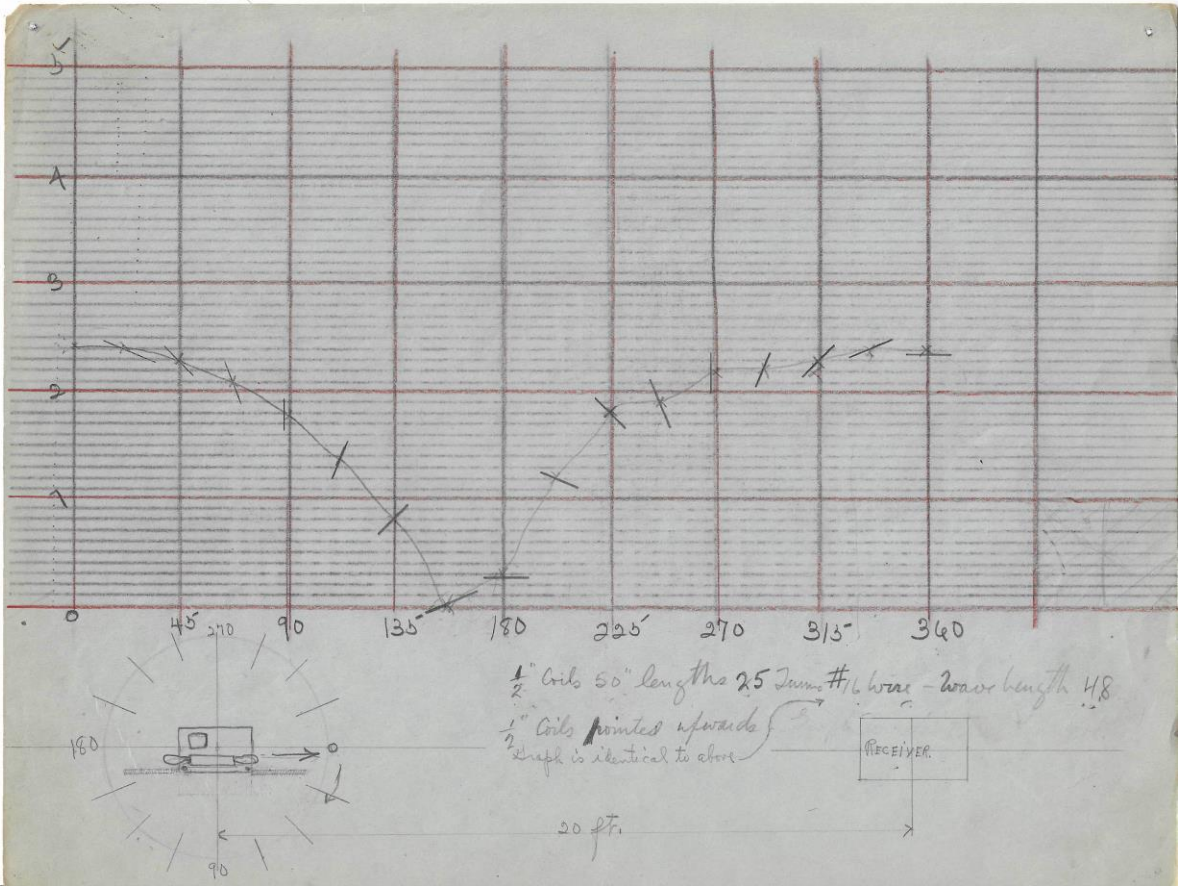 5
4
3
2
1
0 45 90 135 180 225 270 315 360
270
1/2" Coils 50" lengths 25 Turns #16 Wire - Wave Length 48
1/2" Coils Pointed upwards
Graph is identical to above
180
0
RECEIVER.
20 ft.
90